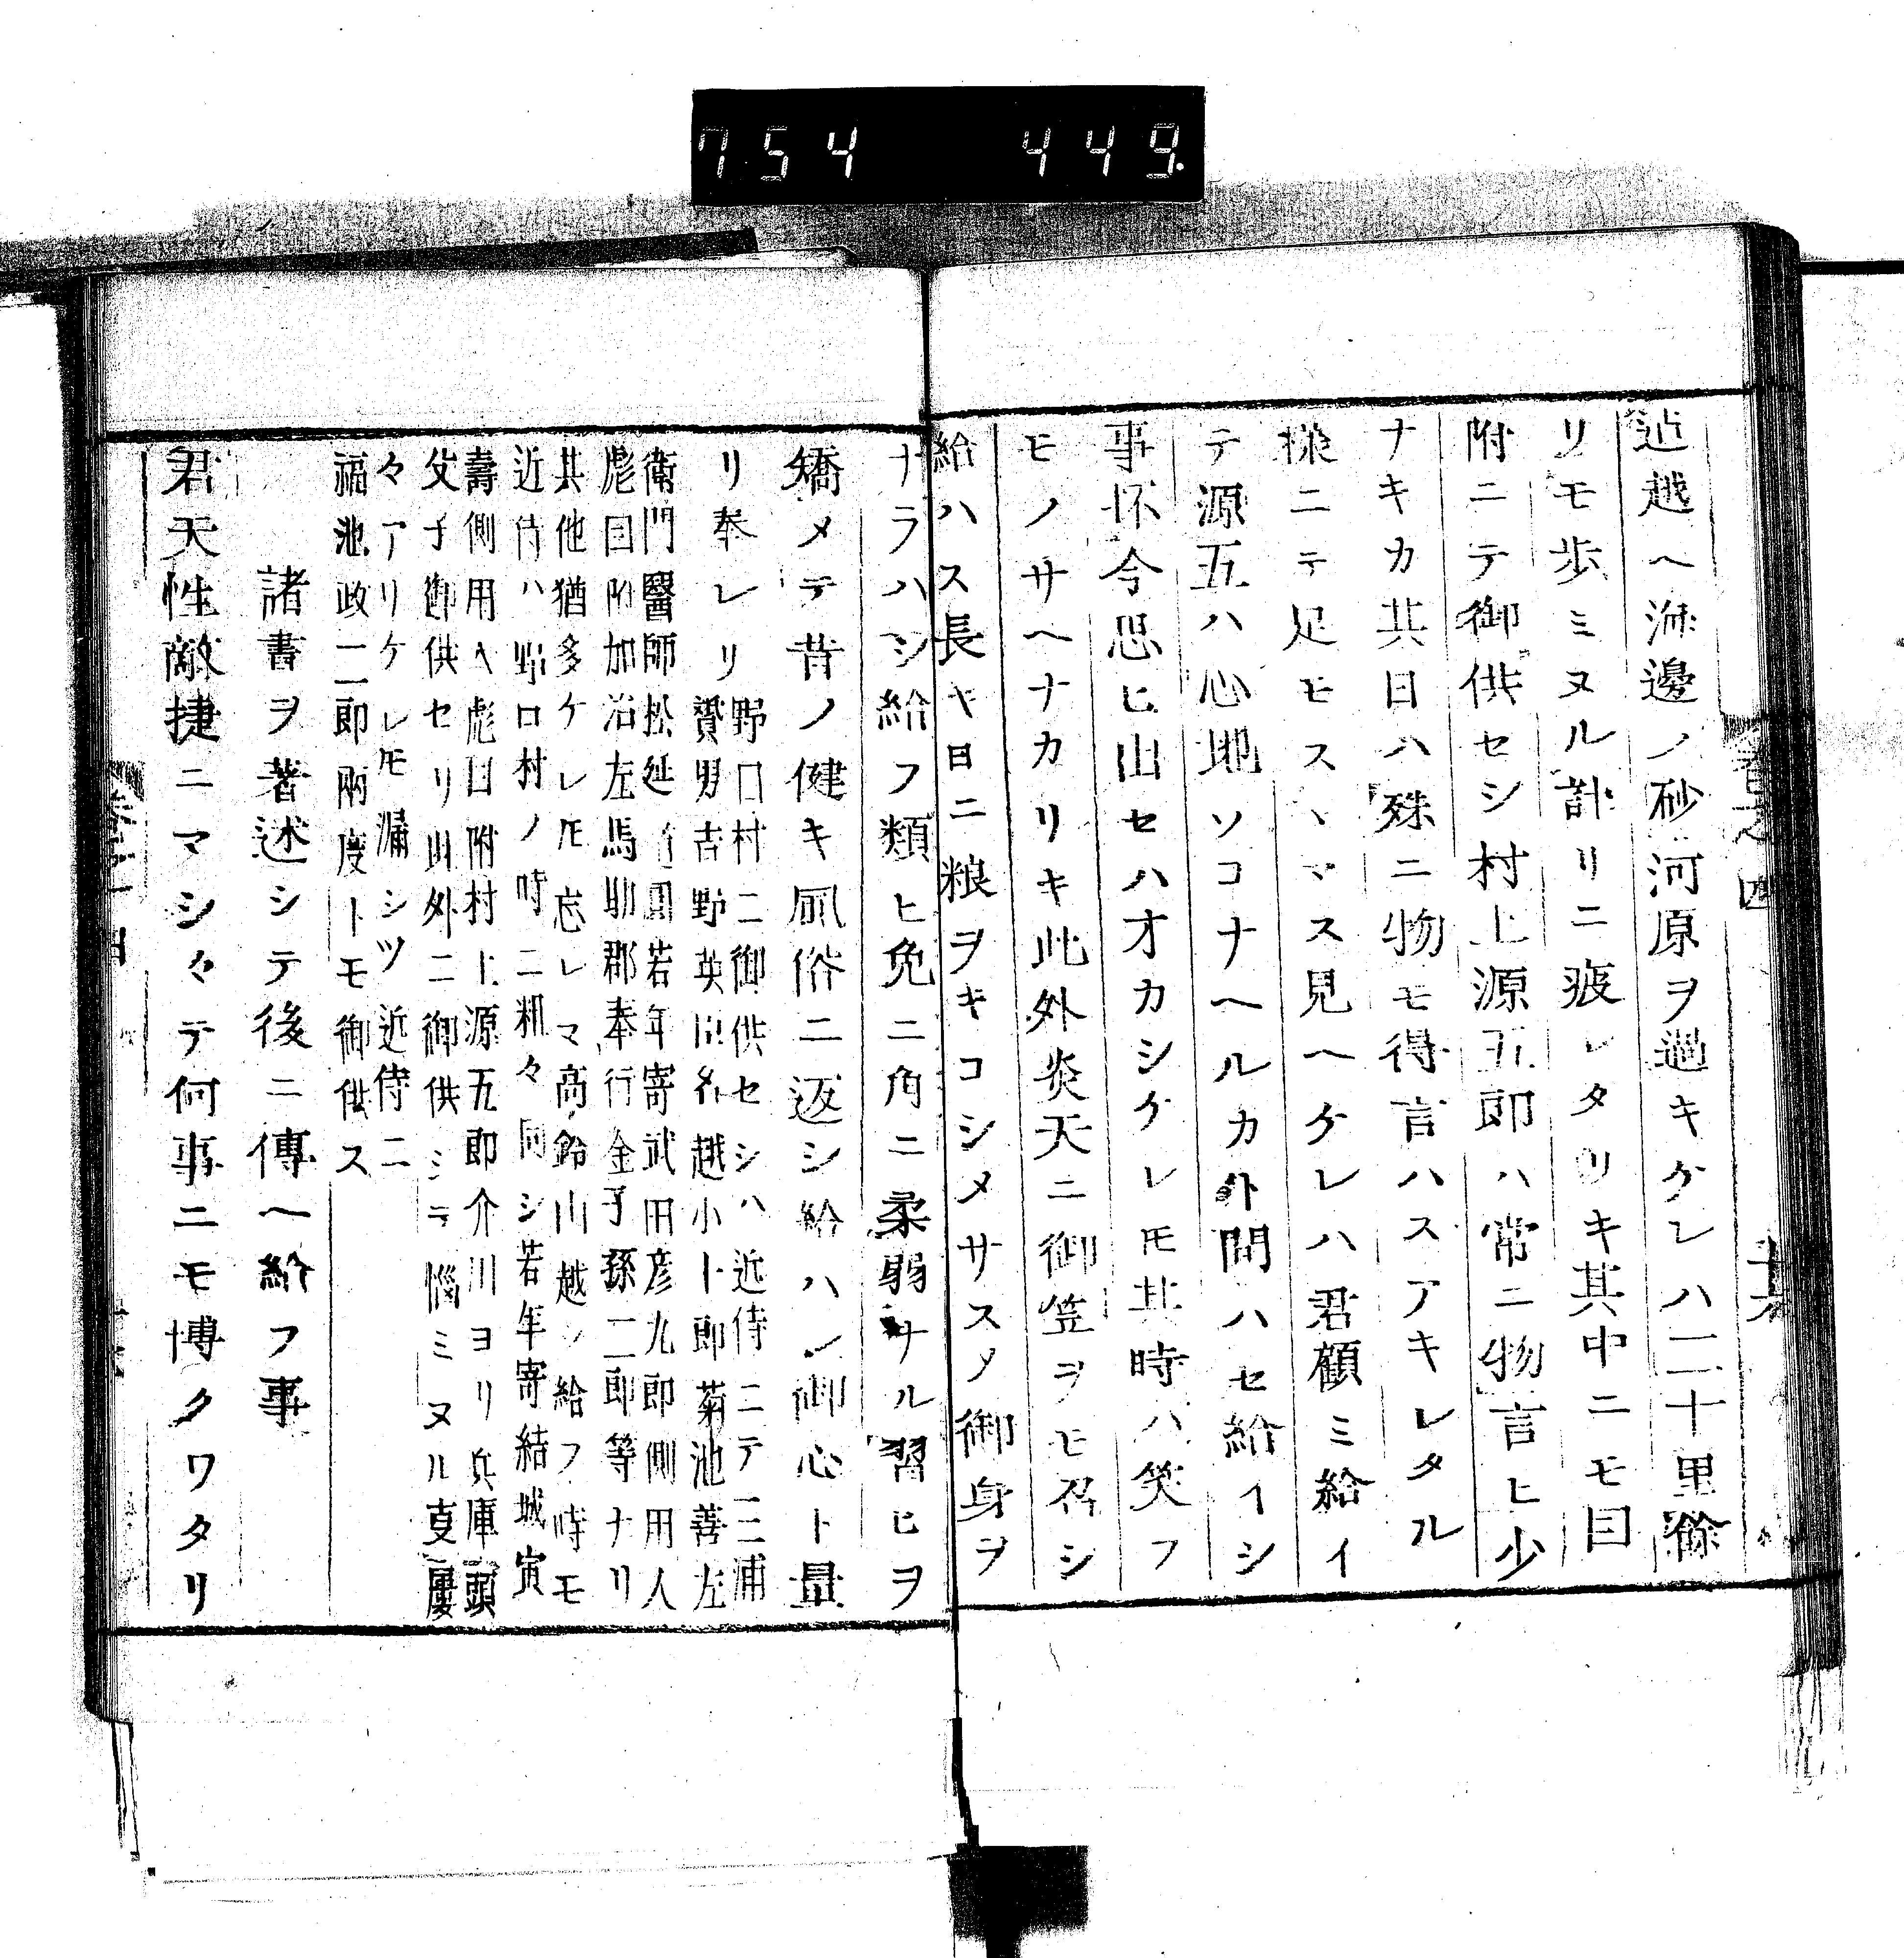 754 449.
迠越ヘ海邊ノ砂河原ヲ過キケレハ二十里餘
リモ歩ミヌル計リニ疲レタリキ其中ニモ目
附ニテ御供セシ村上源五郎ハ常ニ物言ヒ少
ナキカ其日ハ殊ニ物モ得言ハスアキレタル
様ニテ足モスヽマス見ヘケレハ君顧ミ給イ
テ源五ハ心地ソコナヘルカ外問ハセ給イシ
事抔今思ヒ出セハオカシケレㇳモ其時ハ笑フ
モノサヘナカリキ此外炎天ニ御笠ヲモ召シ
給ハス長キ日ニ粮ヲキコシメサスノ御身ヲ
ナラハシ給フ類ヒ免ニ角ニ柔弱ナル習ヒヲ
矯メテ昔ノ健キ風俗ニ返シ給ハン御心ト量
リ奉レリ
野口村ニ御供セシハ近侍ニテ三浦
贇男吉野英臣名越小十郎菊池善左
衛門醫師松延 圓若年寄武田彦九郎側用人
彪目附加治左馬助郡奉行金子孫二郎等ナリ
其他猶多ケレㇳモ忘レヌ高鈴山越シ給フ時モ
近侍ハ野口村ノ時ニ粗々同シ若年寄結城寅
壽側用人彪目附村上源五郎介川ヨリ兵庫頭
父子御供セリ此外ニ御供ニテ悩ミヌル叓屢
々アリケレㇳモ漏シツ近侍ニ
福池政二郎兩度トモ御供ス
諸書ヲ著述シテ後ニ傳ヘ給フ事
君天性敵捷ニマシ々テ何事ニモ博クワタリ